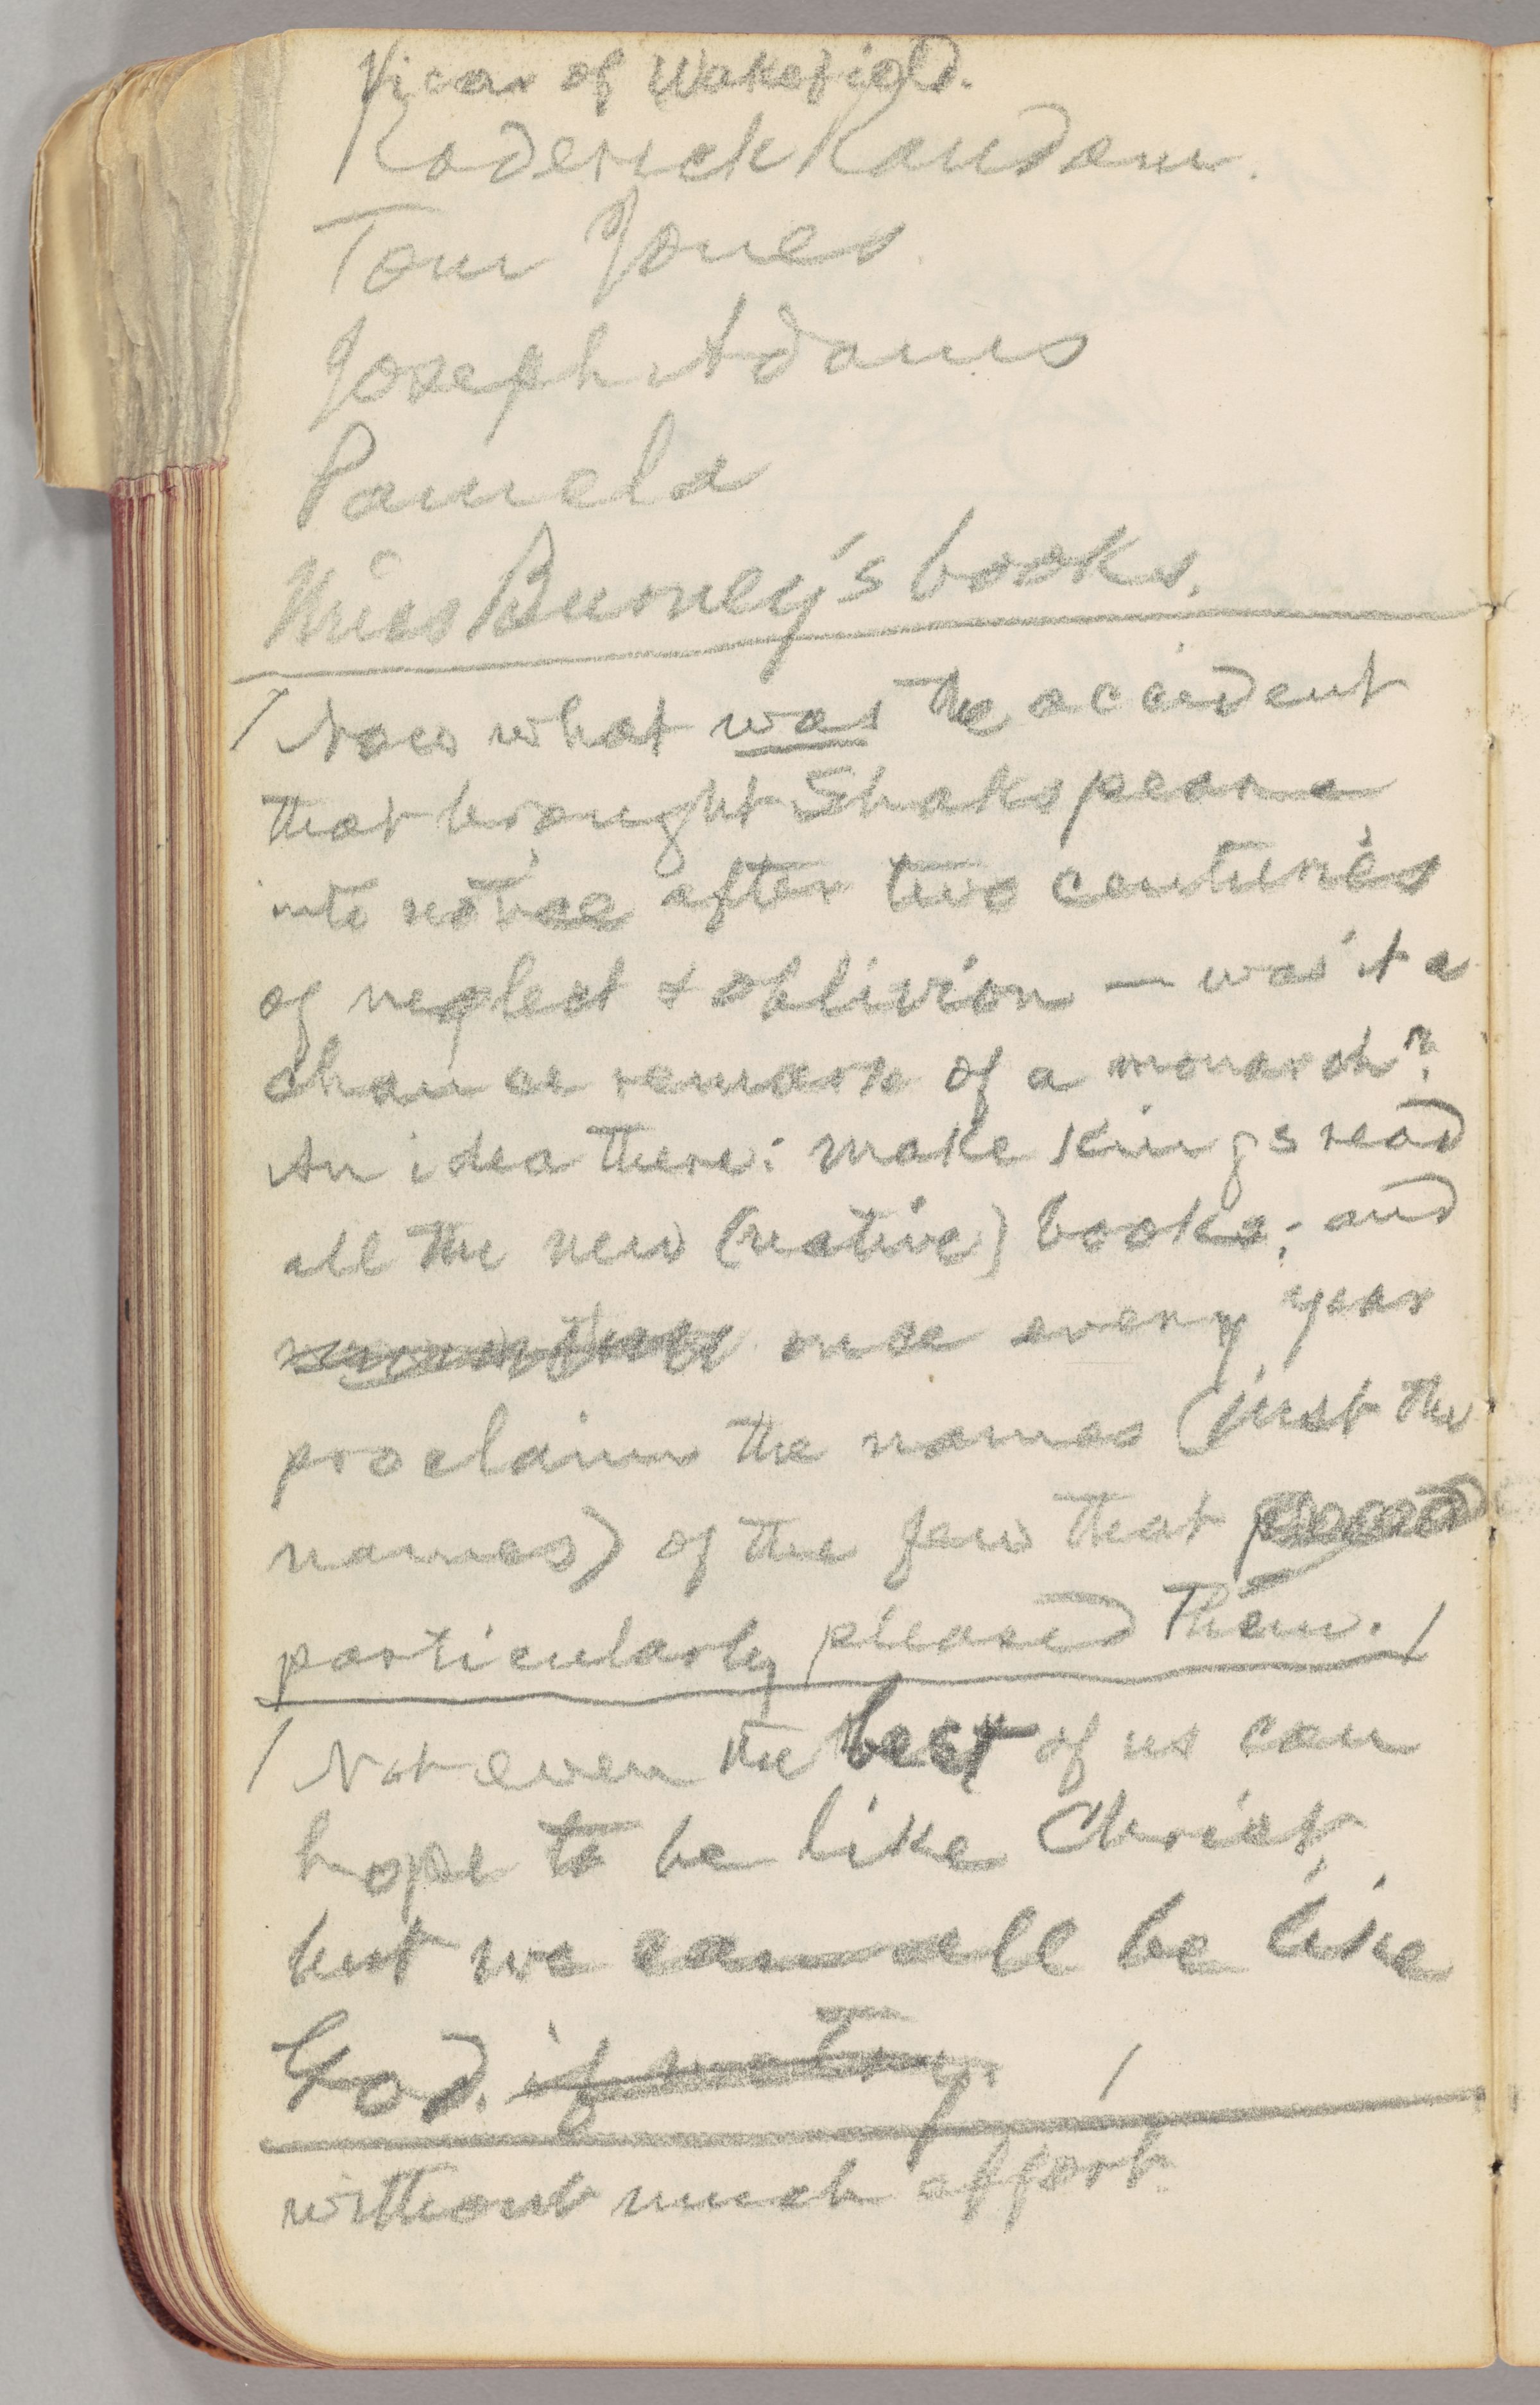 Vicar of Wakefield.
Roderick Random.
Tom Jones
Joseph Adams
Pamela
Miss Burney's books.
/ Now what was the accident
that brought Shakspeare
into notice after two centuries
of neglect & oblivion — was it a
chance remark of a monarch?
An idea there: make kings read
all the new (native) books; and
once every year
proclaim the names (just the
names) of the few that
particularly pleased them. /
/ Not even the best of us can
hope to be like Christ,
but we can all be like
God. if we try. /
without much effort.